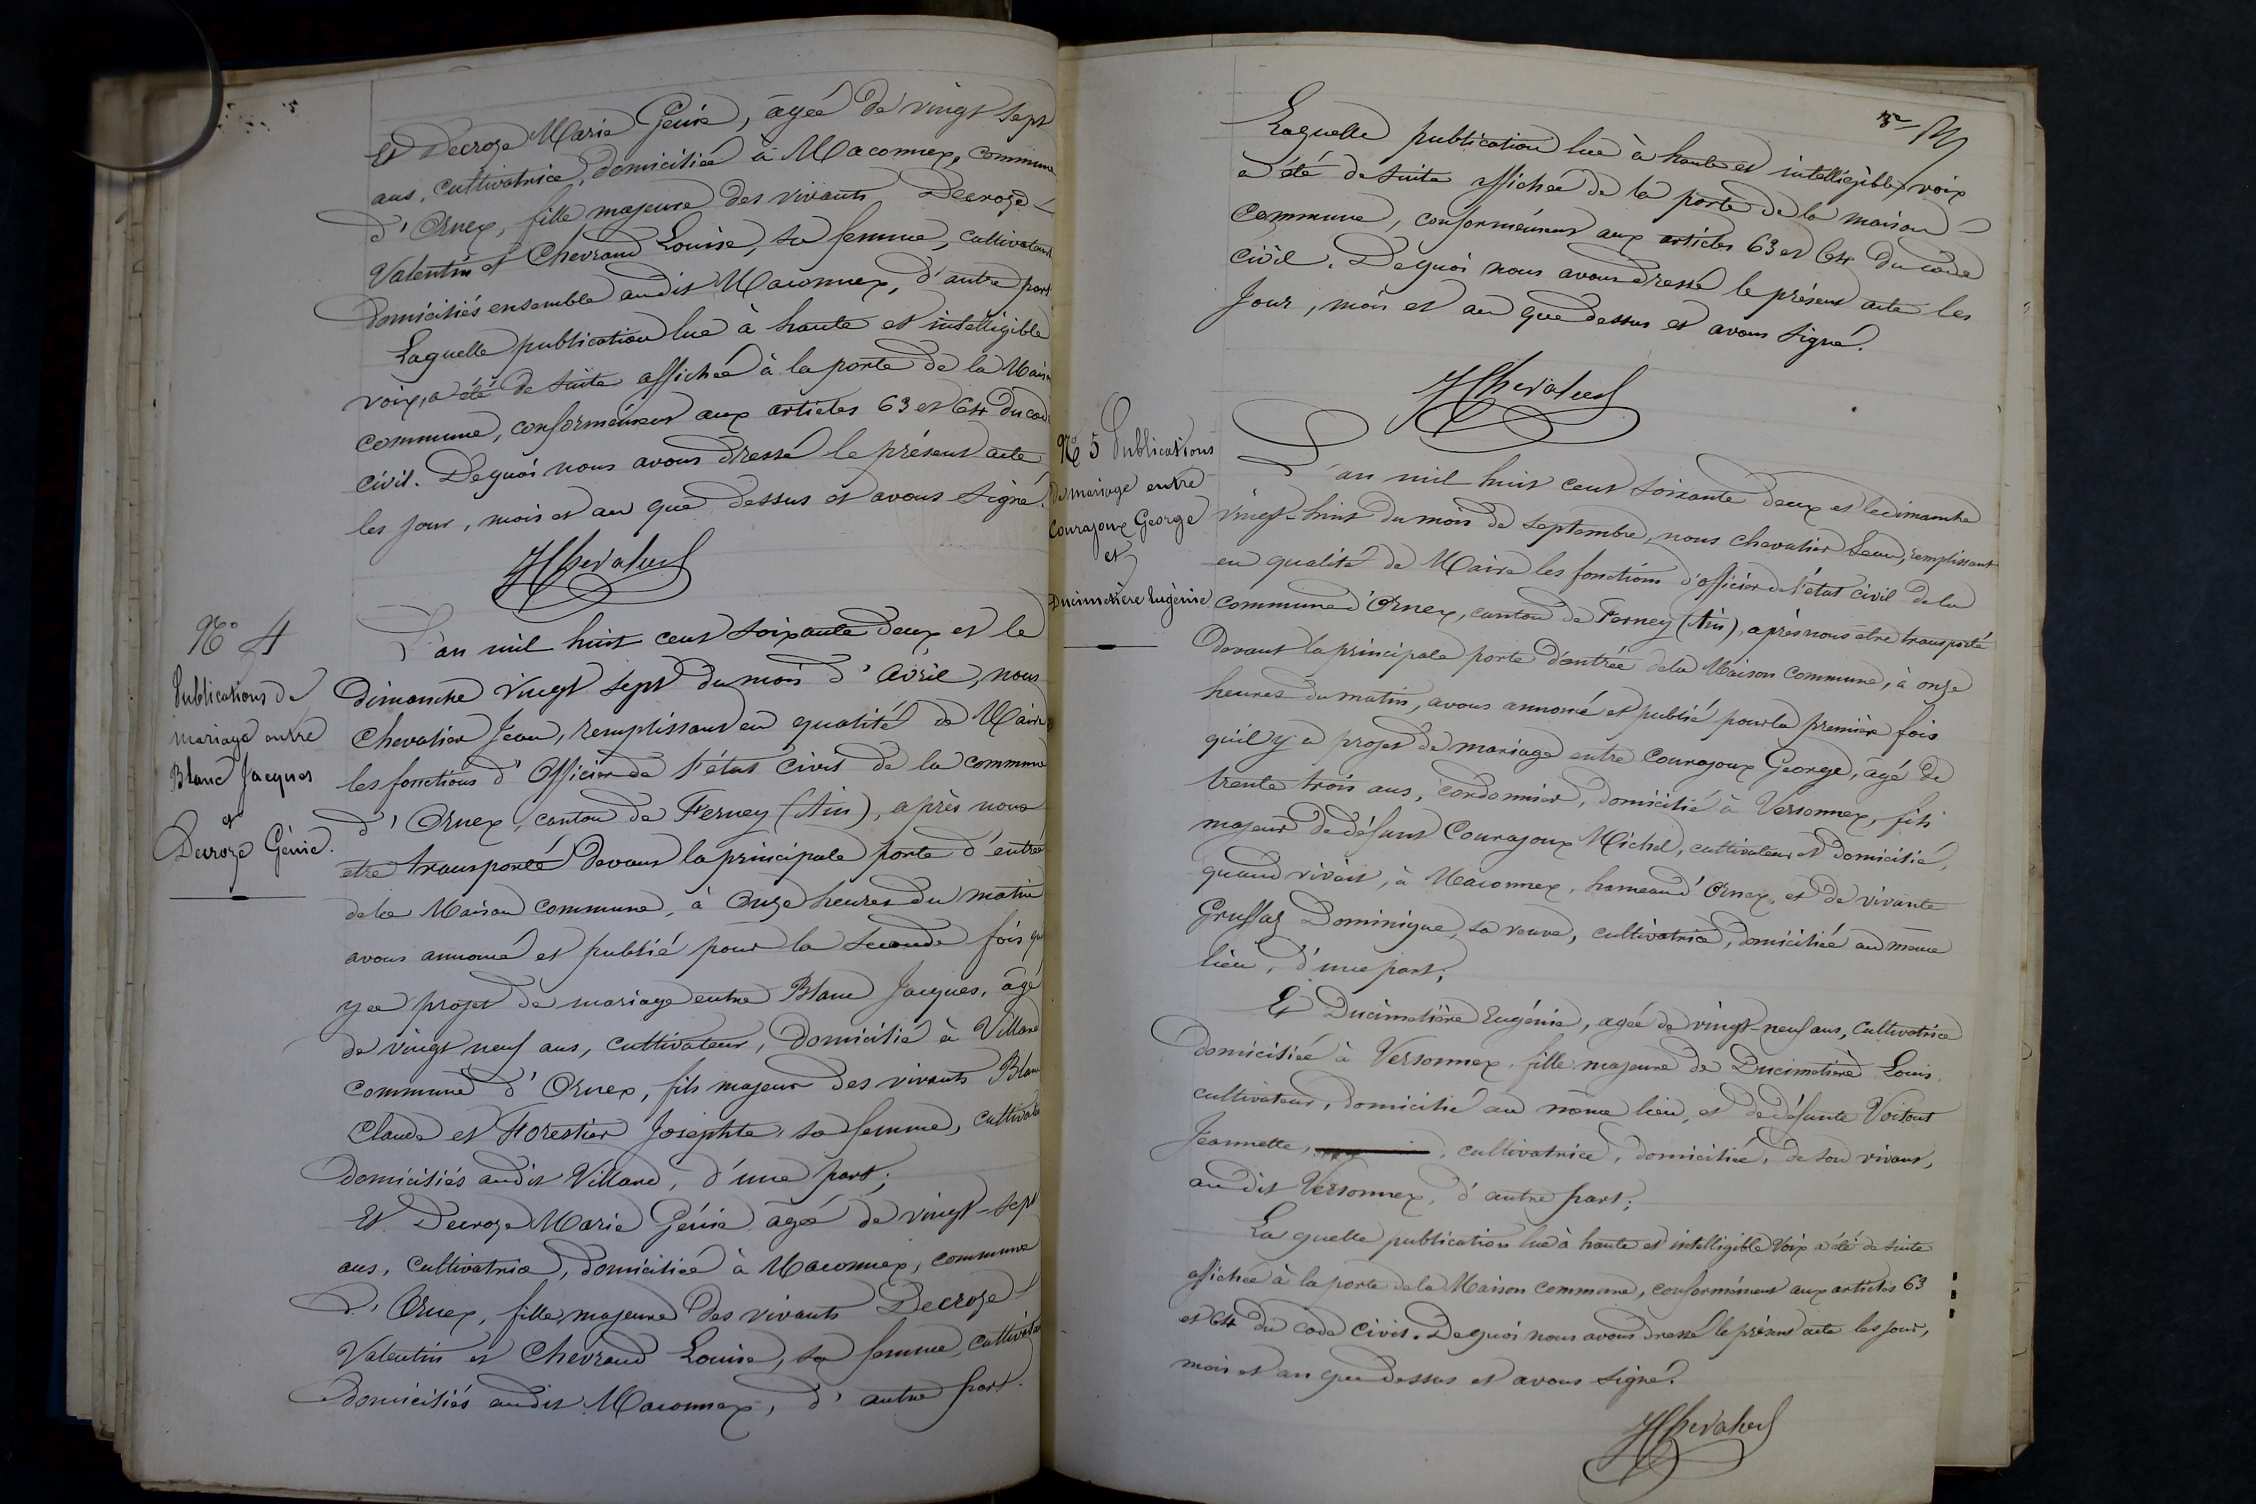 Et Decroze Marie Génie, âgée de vingt sept
ans, cultivatrice, domiciliée à Maconnex, commune
d'Ornex, fille majeure des vivants Decroze
Valentin et Chevrand Louise, sa femme, cultivateurs
domiciliés ensemble audit Maconnex, d'autre part.
Laquelle publication lue à haute et intelligible
voix, a été de suite affichée à la porte de la Maison
commune, conformément aux articles 63 et 64 du code
civil. De quoi nous avons dressé le présent acte
les jour, mois et an que dessus et avons signé.
JChevalier
No 4
Publications de
mariage entre
Blanc Jacques
et
Decroze Génie.
L'an mil huit cent soixante deux et le
Dimanche vingt sept du mois d'avril, nous
Chevalier Jean, remplissant en qualité de Maire
les fonctions d'Officier de l'état civil de la commune
d'Ornex, canton de Ferney (Ain), après nous
etre transporté devant la principale porte d'entrée
de la Maison commune, à onze heures du matin
avons annoncé et publié pour la seconde fois qu'il
y a projet de mariage entre Blanc Jacques, âgé
de vingt neuf ans, cultivateur, domicilié à Villard
commune d'Ornex, fils majeur des vivants Blanc
Claude et Forestier Josephte, sa femme, cultivateurs
domiciliés audit Villard, d'une part;
Et Decroze Marie Génie âgée de vingt-sept
ans, cultivatrice, domiciliée à Maconnex, commune
d'Ornex, fille majeure des vivants Decroze
Valentin et Chevrand Louise, sa femme, cultivateurs
domiciliés audit Maconnex, d'autre part.
Laquelle publication lue à haute et intelligible voix
a été de suite affichée de la porte de la maison
Commune, conformément aux articles 63 et 64 du code
civil. De quoi nous avons dressé le présent acte les
Jour, mois et an que dessus et avons signé.
JChevalier
No 5 Publications
de mariage entre
Courajoux George
et
Ducimetière Eugénie
L'an mil huit cent soixante deux et le dimanche
vingt-huit du mois de septembre, nous Chevalier Jean, remplissant
en qualité de Maire les fonctions d'officier de l'état civil de la
commune d'Ornex, canton de Ferney (Ain), après nous etre transporté
devant la principale porte d'entrée de la Maison commune, à onze
heures du matin, avons annoncé et publié pour la première fois
qu'il y a projet de mariage entre Courajoux George, âgé de
trente trois ans, cordonnier, domicilié à Versonnex, fils
majeur de défunt Courajoux Michel, cultivateur et domicilié,
quand vivait, à Maconnex, hameau d'Ornex, et de vivante
Grussaz Dominique, sa veuve, cultivatrice, domiciliée au même
lieu, d'une part;
Et Ducimetière Eugénie, agée de vingt-neuf ans, cultivatrice
domiciliée à Versonnex, fille majeure de Ducimetière Louis,
cultivateur, domicilié au même lieu, et de défunte Voitout
Jeannette, cultivatrice, domiciliée, de son vivant,
au dit Versonnex, d'autre part;
La quelle publication lue à haute et intelligible voix a été de suite
affichée à la porte de la Maison commune, conformément aux articles 63
et 64 du code civil. De quoi nous avons dressé le présent acte les jour,
mois et an que dessus et avons signé.
JChevalier